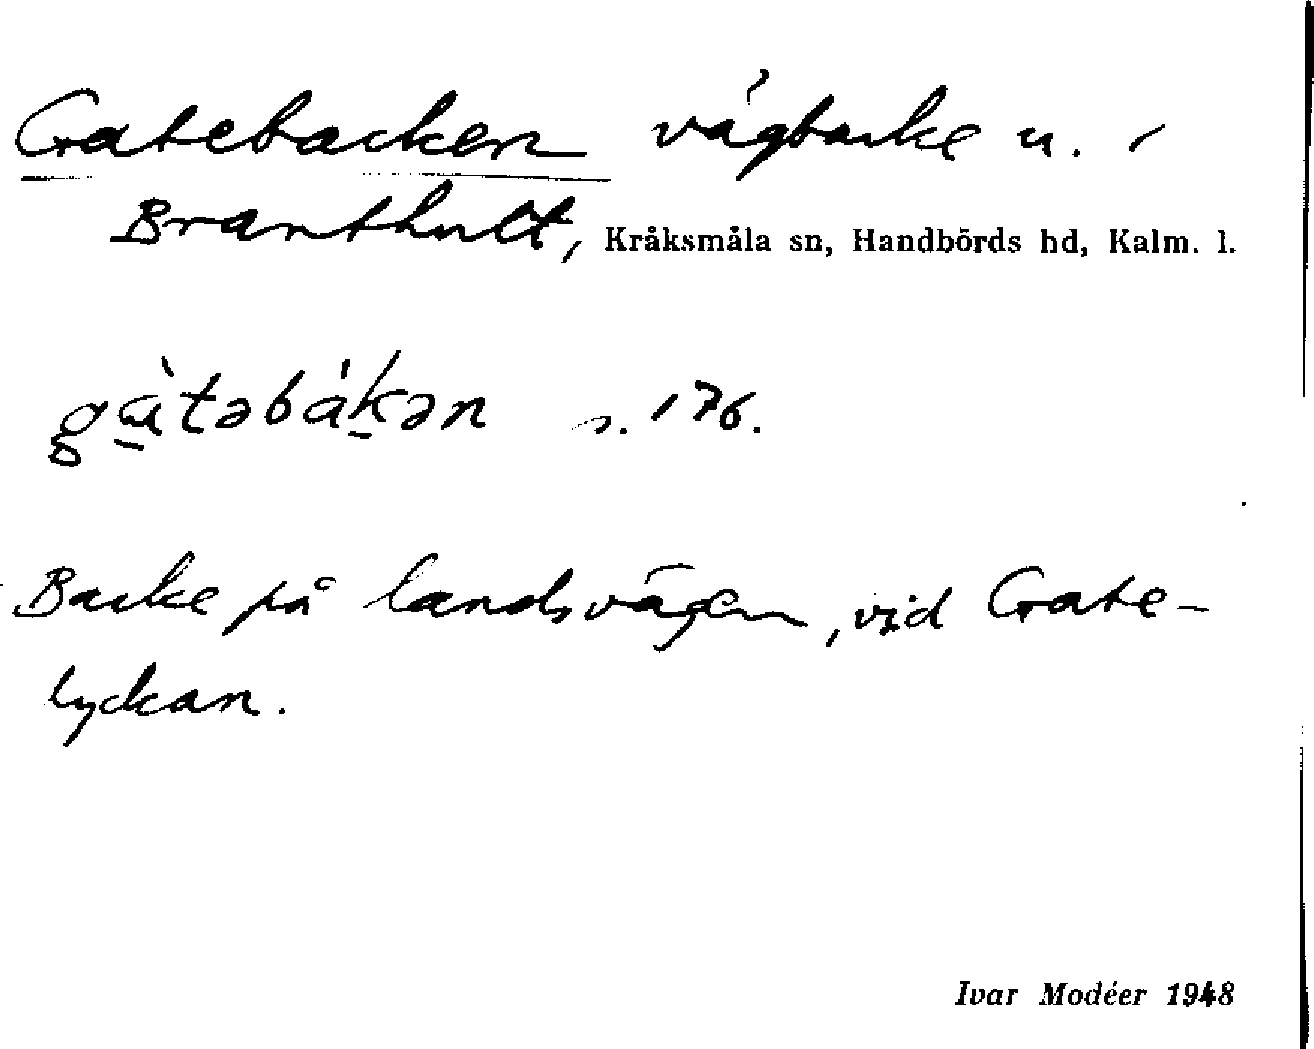 Gatebacken vägbacke u. i
Branthult, Kråksmåla sn, Handbörds hd, Kalm. l.
gàtəbákən s. 176.
Backe på landsvägen, vid Gate-
lyckan.
Ivar Modéer 1948